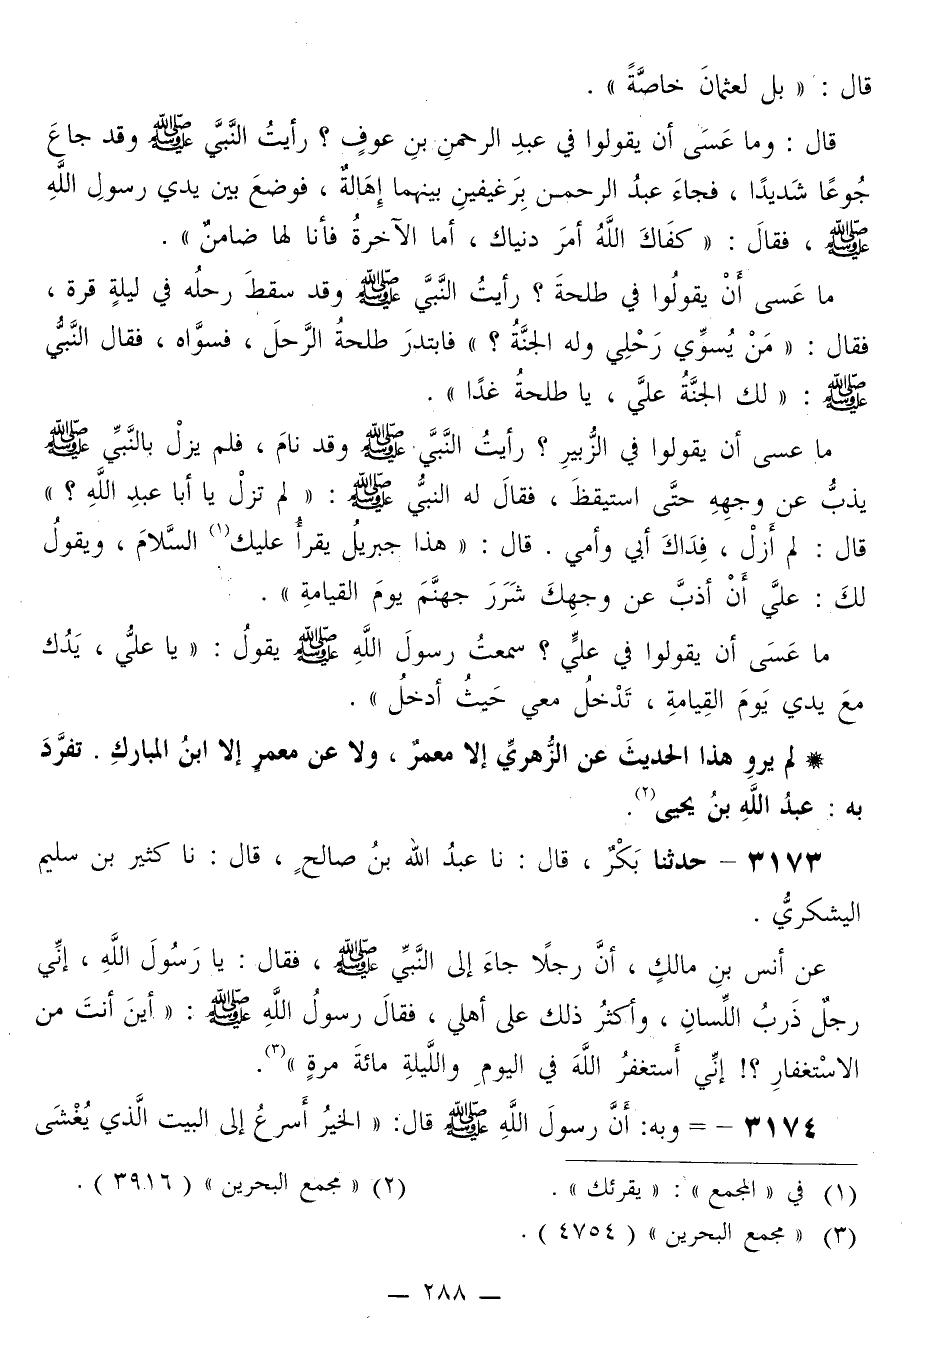 قال : « بل لعثمانَ خاصَّةً » .
قال : وما عَسَى أن يقولوا في عبدِ الرحمنِ بنِ عوفٍ ؟ رأيتُ النَّبيَّ ﷺ وقد جاعَ
جُوعًا شديدًا ، فجاءَ عبدُ الرحمـن بِرَغيفينِ بينهما إِهَالةٌ ، فوضعَ بين يدي رسولِ اللَّهِ
ﷺ ، فقالَ : « كفَاكَ اللَّهُ أمرَ دنياك ، أما الآخرةُ فأنا لها ضامنٌ » .
ما عَسى أَنْ يقولُوا في طلحةَ ؟ رأيتُ النَّبيَّ ﷺ وقد سقطَ رحلُه في ليلةٍ قرة ،
فقال : « مَنْ يُسوِّي رَحْلِي وله الجنَّةُ ؟ » فابتدرَ طلحةُ الرَّحلَ ، فسوَّاه ، فقال النَّبيُّ
ﷺ : « لك الجنَّةُ عليَّ ، يا طلحةُ غدًا » .
ما عسى أن يقولوا في الزُّبيرِ ؟ رأيتُ النَّبيَّ ﷺ وقد نامَ ، فلم يزلْ بالنَّبيِّ ﷺ
يذبُّ عن وجهِهِ حتَّى استيقظَ ، فقالَ له النبيُّ ﷺ : « لم تزلْ يا أبا عبدِ اللَّهِ ؟ »
قال : لم أَزلْ ، فِدَاكَ أبي وأمي . قال : « هذا جبريلُ يقرأُ عليك(١) السَّلامَ ، ويقولُ
لكَ : عليَّ أَنْ أذبَّ عن وجهِكَ شَرَرَ جهنَّمَ يومَ القيامةِ » .
ما عَسَى أن يقولوا في عليٍّ ؟ سمعتُ رسولَ اللَّهِ ﷺ يقولُ : « يا عليُّ ، يَدُك
معَ يدي يَومَ القِيامةِ ، تَدْخلُ معي حَيثُ أدخلُ » .
* لم يروِ هذا الحديثَ عن الزُّهريِّ إلا معمرٌ ، ولا عن معمرٍ إلا ابنُ المباركِ . تفرَّدَ
به : عبدُ اللَّهِ بنُ يحيى(٢).
٣١٧٣ – حدثنا بَكْرٌ ، قال : نا عبدُ الله بنُ صالحٍ ، قال : نا كثير بن سليم
اليشكريُّ .
عن أنس بنِ مالكٍ ، أنَّ رجلًا جاءَ إلى النَّبيِّ ﷺ ، فقال : يا رَسُولَ اللَّهِ ، إنِّي
رجلٌ ذَربُ اللِّسانِ ، وأكثرُ ذلك على أهلي ، فقالَ رسولُ اللَّهِ ﷺ : « أينَ أنتَ من
الاسْتغفارِ ؟! إنِّي أَستغفرُ اللَّهَ في اليومِ واللَّيلةِ مائةَ مرةٍ »(٣).
٣١٧٤ – = وبه: أَنَّ رسولَ اللَّهِ ﷺ قال: « الخيرُ أَسرعُ إلى البيت الَّذي يُغْشَى
(١) في « المجمع » : « يقرئك » . (٢) « مجمع البحرين » ( ٣٩١٦ ) .
(٣) « مجمع البحرين » ( ٤٧٥٤ ) .
— ٢٨٨ —